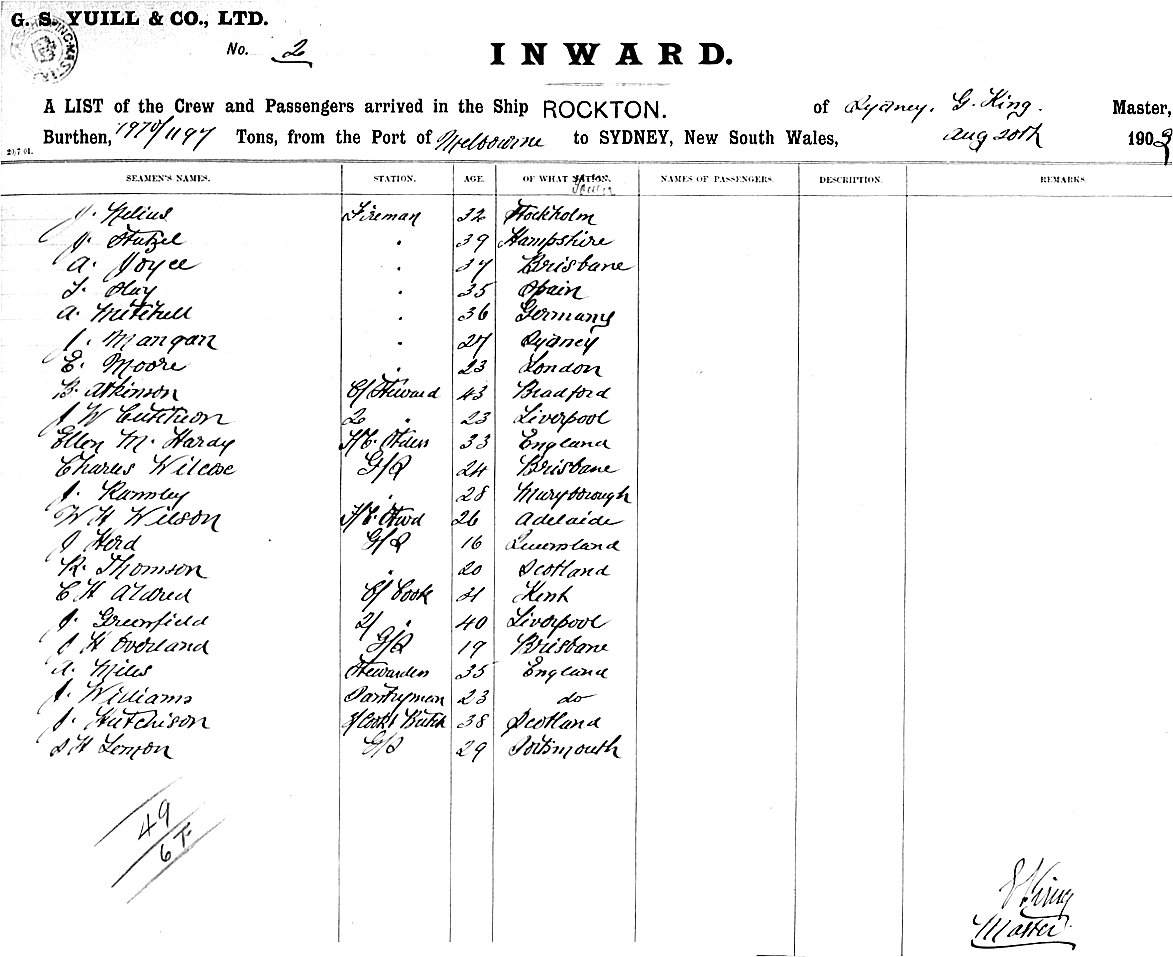 G. S. YUILL & CO., LTD.
No. 2
INWARD.
A LIST of the Crew and Passengers arrived in the Ship ROCKTON. of Sydney. G. King. Master,
Burthen, 1970/1197 Tons, from the Port of Melbourne to SYDNEY, New South Wales, Aug 20th 1903
SEAMEN'S NAMES. STATION. AGE. OF WHAT NATION. NAMES OF PASSENGERS. DESCRIPTION. REMARKS.
J. Nelius Fireman 32 Stockholm
J. Stutzel " 39 Hampshire
A. Joyce " 37 Brisbane
" 35 Spain
A. Mitchell " 36 Germany
J. Mangan " 27 Sydney
E. Moore " 23 London
B. Atkinson C/ Steward 43 Bradford
J W 2 " 23 Liverpool
Ellen M. Hardy 33 England
Charles Wilcose G/S 24 Brisbane
J. Rumley " 28 Maryborough
W H Wilson F/C. Stwd 26 Adelaide
J Herd G/S 16 Queensland
R. Thomson " 20 Scotland
C H Aldred C/ Cook 31 Kent
J. Greenfield 2/ " 40 Liverpool
J H Overland G/S 19 Brisbane
A. Miles Stewardess 35 England
J. Williams Pantryman 23 do
J. Hutchison 3/ Cook & Butch 38 Scotland
S H Lemon G/S 29 Portsmouth
49
6 T.
G King
Master